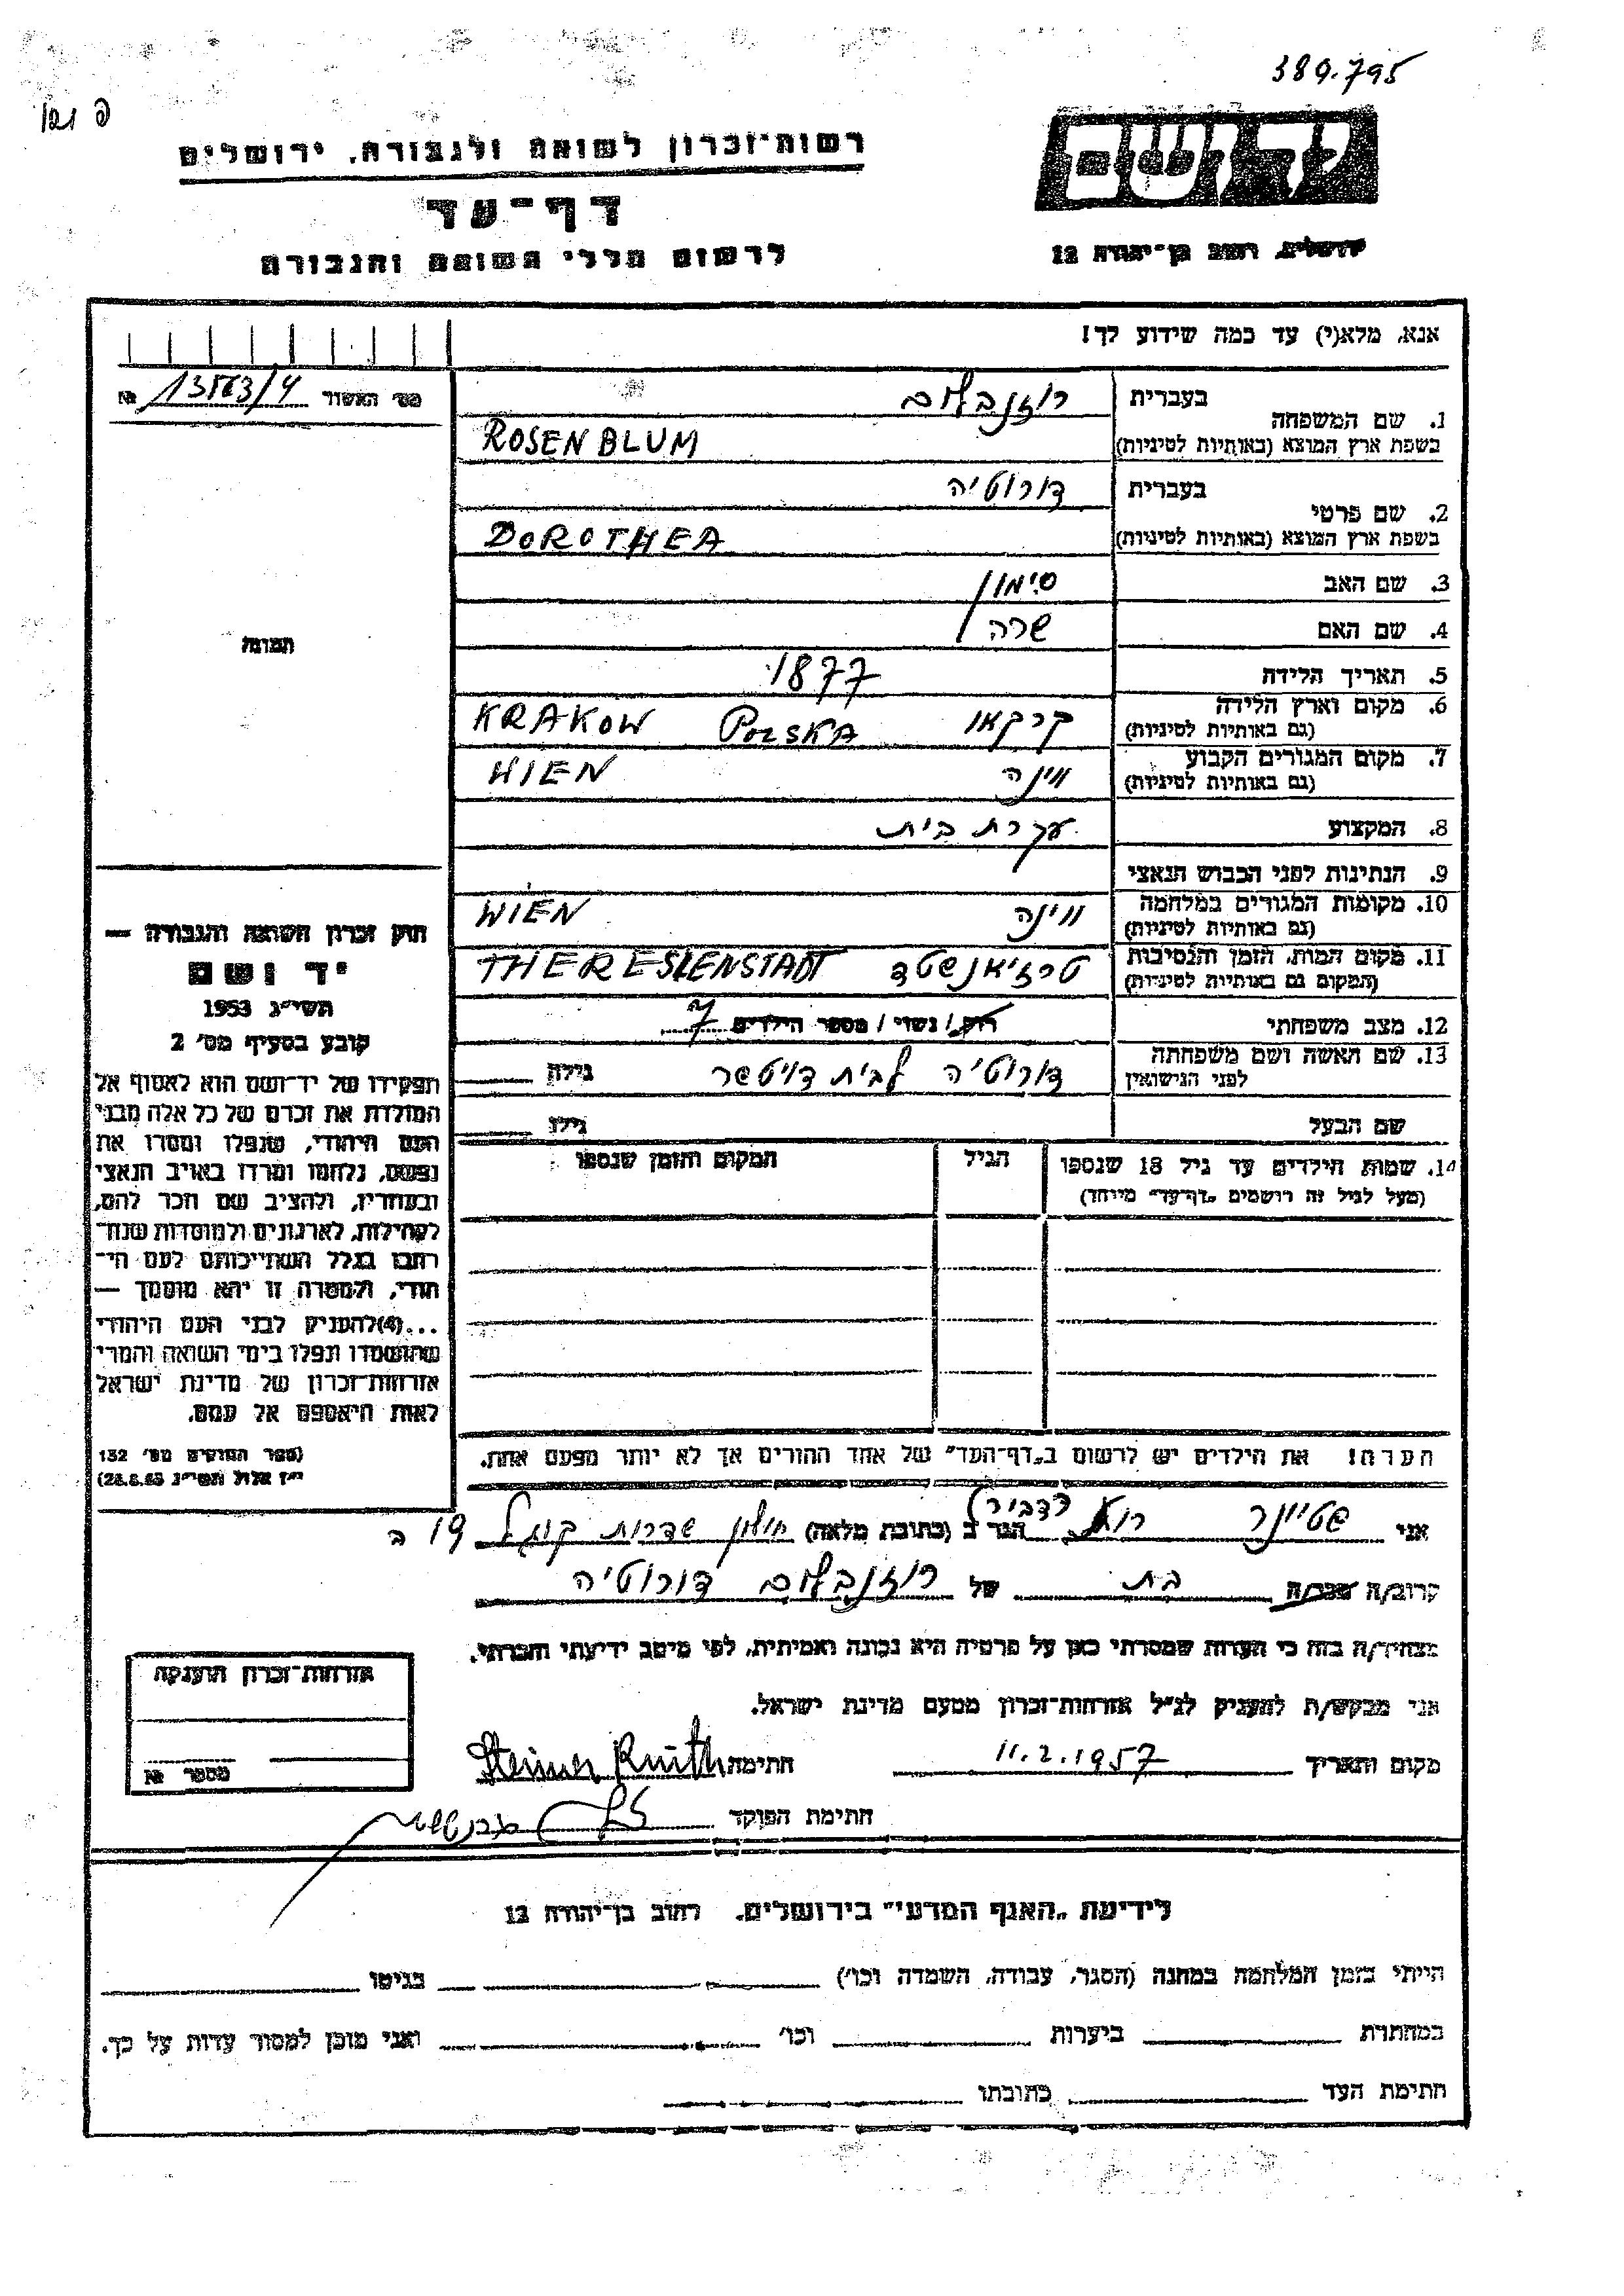 389.795
רשות־זכרון לשואה ולגבורה, ירושלים
דף־עד
לרשום חללי השואה והגבורה
יד ושם
ירושלים, רחוב בן־יהודה 12
אנא, מלא(י) עד כמה שידוע לך!
מס׳ האשור №
1. שם המשפחה
בעברית רוזנבלום
בשפת ארץ המוצא (באותיות לטיניות) ROSENBLUM
2. שם פרטי
בעברית דורוטיה
בשפת ארץ המוצא (באותיות לטיניות) DOROTHEA
3. שם האב סימון
4. שם האם שרה
5. תאריך הלידה 1877
6. מקום וארץ הלידה (גם באותיות לטיניות) קרקאו POLSKA KRAKOW
7. מקום המגורים הקבוע (גם באותיות לטיניות) וינה WIEN
8. המקצוע עקרת בית
9. הנתינות לפני הכבוש הנאצי
10. מקומות המגורים במלחמה (גם באותיות לטיניות) וינה WIEN
11. מקום המות, הזמן והנסיבות (המקום גם באותיות לטיניות) טרזיאנשטד THERESIENSTADT
12. מצב משפחתי רווק / נשוי / מספר הילדים 7
13. שם האשה ושם משפחתה לפני הנישואין דורוטיה לבית דויטשר גילה
שם הבעל גילו
14. שמות הילדים עד גיל 18 שנספו (מעל לגיל זה רושמים „דף־עד״ מיוחד)
הגיל
המקום והזמן שנספו
הערה! את הילדים יש לרשום ב„דף־העד״ של אחד ההורים אך לא יותר מפעם אחת.
תמונה
חוק זכרון השואה והגבורה —
יד ושם
תשי״ג 1953
קובע בסעיף מס׳ 2
תפקידו של יד־ושם הוא לאסוף אל
המולדת את זכרם של כל אלה מבני
העם היהודי, שנפלו ומסרו את
נפשם, נלחמו ומרדו באויב הנאצי
ובעוזריו, ולהציב שם וזכר להם,
לקהילות, לארגונים ולמוסדות שנח־
רבו בגלל השתייכותם לעם הי־
הודי, ולמטרה זו יהא מוסמך —
...(4)להעניק לבני העם היהודי
שהושמדו ונפלו בימי השואה והמרי
אזרחות־זכרון של מדינת ישראל
לאות היאספם אל עמם.
(ספר החוקים מס׳ 132
י״ז אלול תשי״ג 28.8.53)
אני שטיינר רות הגר ב (כתובת מלאה) חולון שדרות קוגל 19 ב
קרוב/ה מכר/ה בת של רוזנבלום דורוטיה
מצהיר/ה בזה כי העדות שמסרתי כאן על פרטיה היא נכונה ואמיתית, לפי מיטב ידיעתי והכרתי.
אני מבקש/ת להעניק לנ״ל אזרחות־זכרון מטעם מדינת ישראל.
מקום ותאריך 11.2.1957 חתימה Steiner Ruith
חתימת הפוקד
אזרחות־זכרון הוענקה
מספר №
לידיעת „האגף המדעי״ בירושלים, רחוב בן־יהודה 12
הייתי בזמן המלחמה במחנה (הסגר, עבודה, השמדה וכו׳) בגיטו
במחתרת ביערות וכו׳ ואני מוכן למסור עדות על כך.
חתימת העד כתובתו